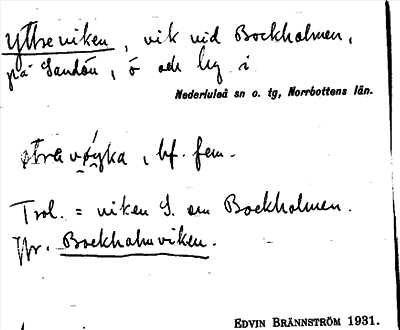 Ytterviken, vik vid Bockholmen,
på Sandön, ö och by i
Nederluleå sn o. tg, Norrbottens län.
bf. fem.
Trol. = viken S. om Bockholmen.
Jfr. Bockholmviken.
EDVIN BRÄNNSTRÖM 1931.